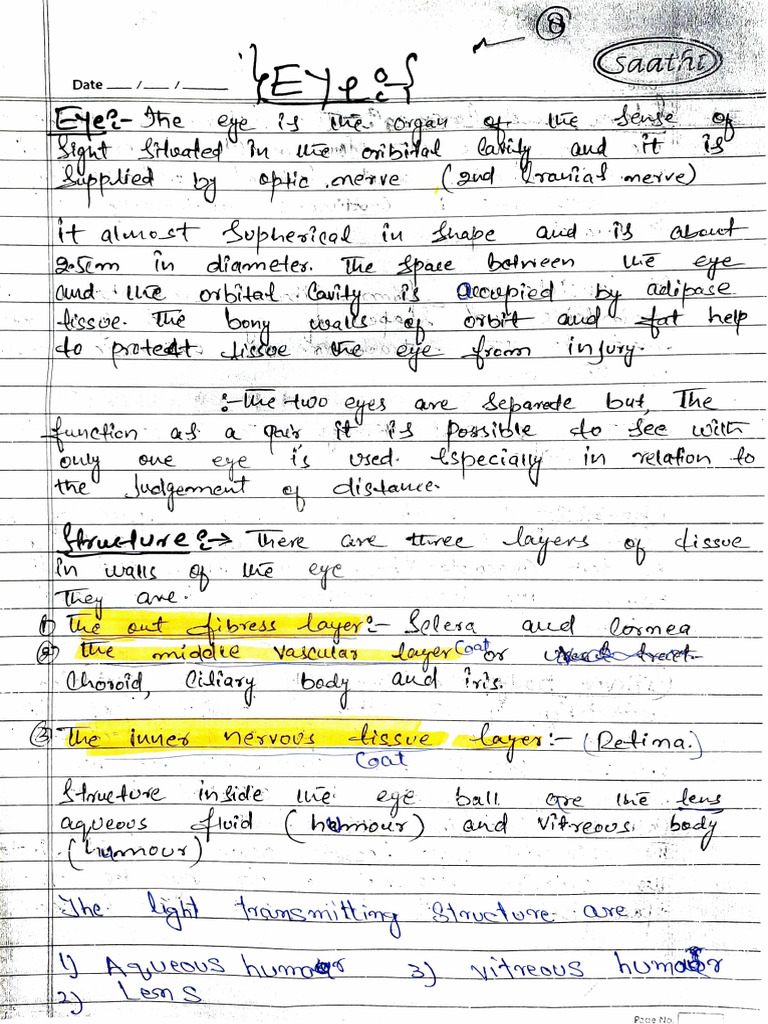 8
Saathi
Date __/__/__
{Eye:-}
Eye:- The eye is the organ of the sense of
sight situated in the oribital cavity and it is
supplied by optic nerve (2nd Cranial nerve)
it almost supherical in shape and is about
2.5cm in diameter. The space between the eye
and the orbital cavity is accupied by adipase
tissue. The bony walls of orbit and fat help
to protect tissue the eye from injury.
:- The two eyes are separate but, The
function as a pair it is possible to see with
only one eye is used. Especially in relation to
the Judgement of distance.
Structure:→ There are three layers of tissue
in walls of the eye
They are.
1) The out fibress layer:- Sclera and Cornea
2) the middle vascular layer coat or
Choroid, Ciliary body and iris.
3) The inner nervous tissue layer:- (Retina.)
Coat
Structure inside the eye ball are the lens
aqueous fluid (humour) and vitreous body
(humour)
The light transmitting structure are
1) Aqueous humour 3) vitreous humour
2) Lens
Page No.